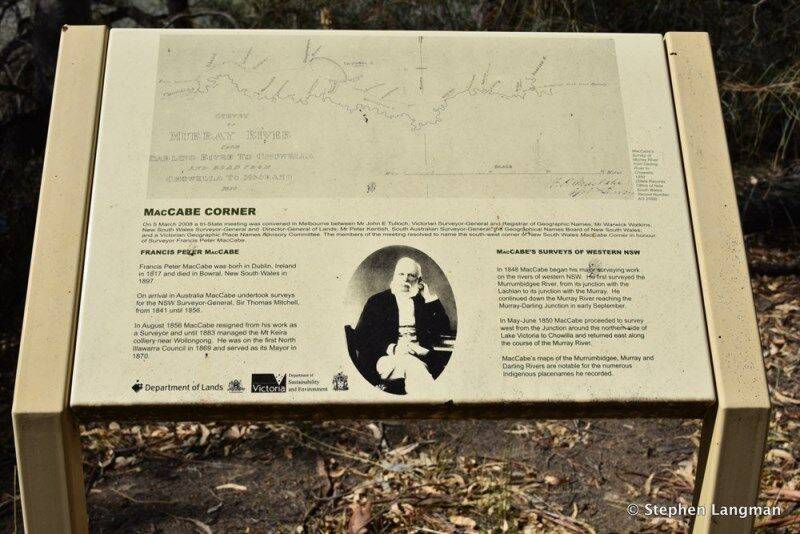 SURVEY
OF
MURRAY RIVER
FROM
DARLING RIVER TO CHOWELLA
AND ROAD FROM
CHOWELLA TO MOORANO
1850
SCALE
MacCabe's
Survey of
Murray River
from Darling
River to
Chowella,
1850
(State Records
Office of New
South Wales
MACCABE CORNER
On 5 March 2008 a tri-State meeting was convened in Melbourne between Mr John E Tulloch, Victorian Surveyor-General and Registrar of Geographic Names, Mr Warwick Watkins,
New South Wales Surveyor-General and Director-General of Lands, Mr Peter Kentish, South Australian Surveyor-General, the Geographical Names Board of New South Wales,
and a Victorian Geographic Place Names Advisory Committee. The members of the meeting resolved to name the south-west corner of New South Wales MacCabe Corner in honour
of Surveyor Francis Peter MacCabe.
FRANCIS PETER MACCABE
Francis Peter MacCabe was born in Dublin, Ireland
in 1817 and died in Bowral, New South Wales in
1897.
On arrival in Australia MacCabe undertook surveys
for the NSW Surveyor-General, Sir Thomas Mitchell,
from 1841 until 1856.
In August 1856 MacCabe resigned from his work as
a Surveyor and until 1883 managed the Mt Keira
colliery near Wollongong. He was on the first North
Illawarra Council in 1869 and served as its Mayor in
1870.
MACCABE'S SURVEYS OF WESTERN NSW
In 1848 MacCabe began his major surveying work
on the rivers of western NSW. He first surveyed the
Murrumbidgee River, from its junction with the
Lachlan to its junction with the Murray. He
continued down the Murray River reaching the
Murray-Darling Junction in early September.
In May-June 1850 MacCabe proceeded to survey
west from the Junction around the northern side of
Lake Victoria to Chowilla and returned east along
the course of the Murray River.
MacCabe's maps of the Murrumbidgee, Murray and
Darling Rivers are notable for the numerous
Indigenous placenames he recorded.
Department of Lands
Victoria
Department of
Sustainability
and Environment
© Stephen Langman